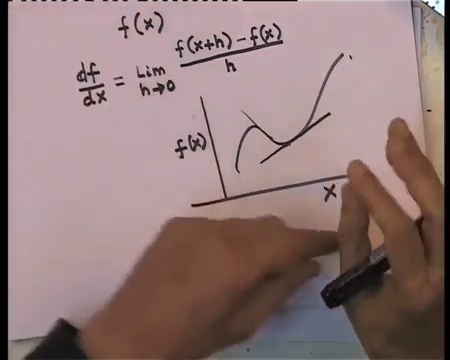 f(x)
df/dx = Lim h→0 f(x+h) - f(x) / h
f(x)
x